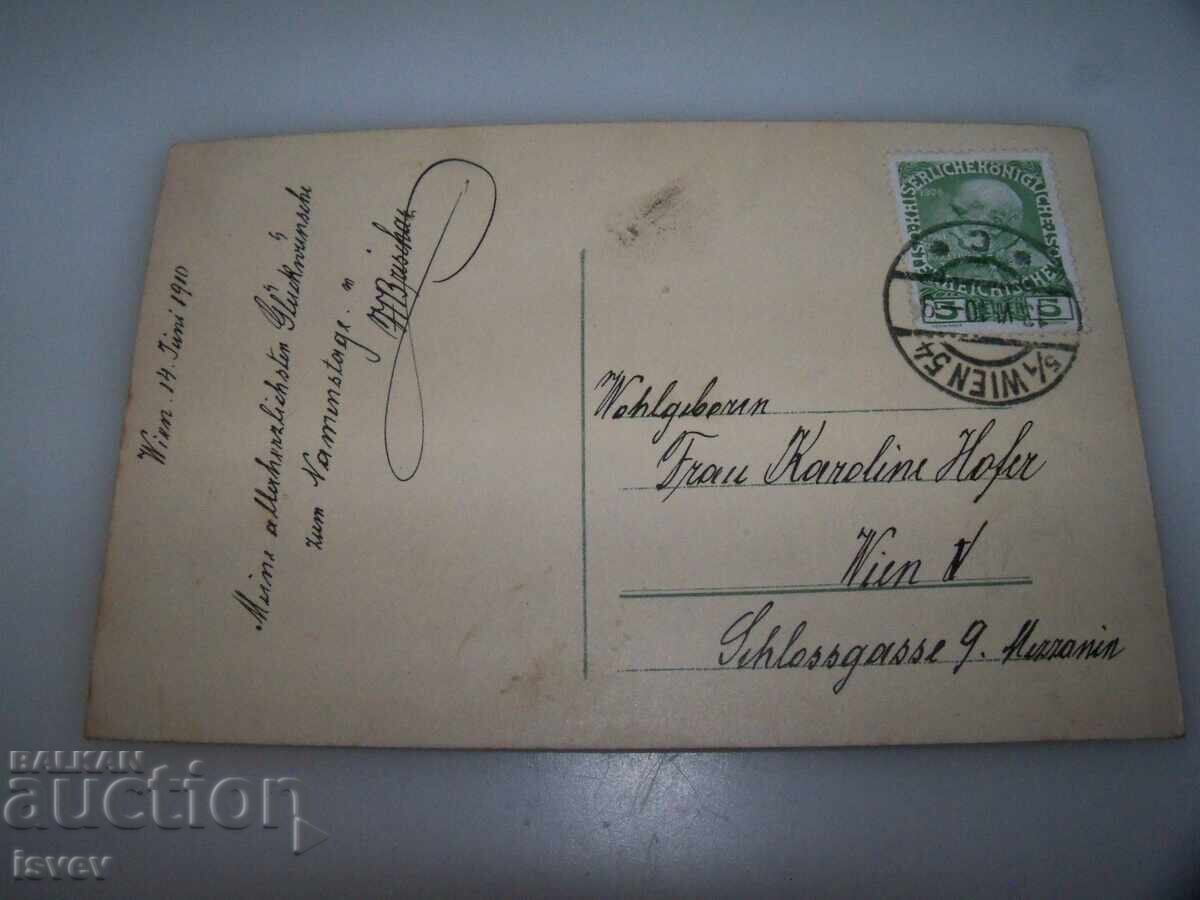 Wien. 14. Juni 1910
Meine allerherzlichsten Glückwünsche
zum Namenstage.
KAISERLICHEKÖNIGLICHE
REICHISCHE
5 5
5/1 WIEN 54
VI 10
C
Wohlgeboren
Frau Karoline Hofer
Wien V
Schlossgasse 9. Mezzanin
BALKAN
auction
isvev